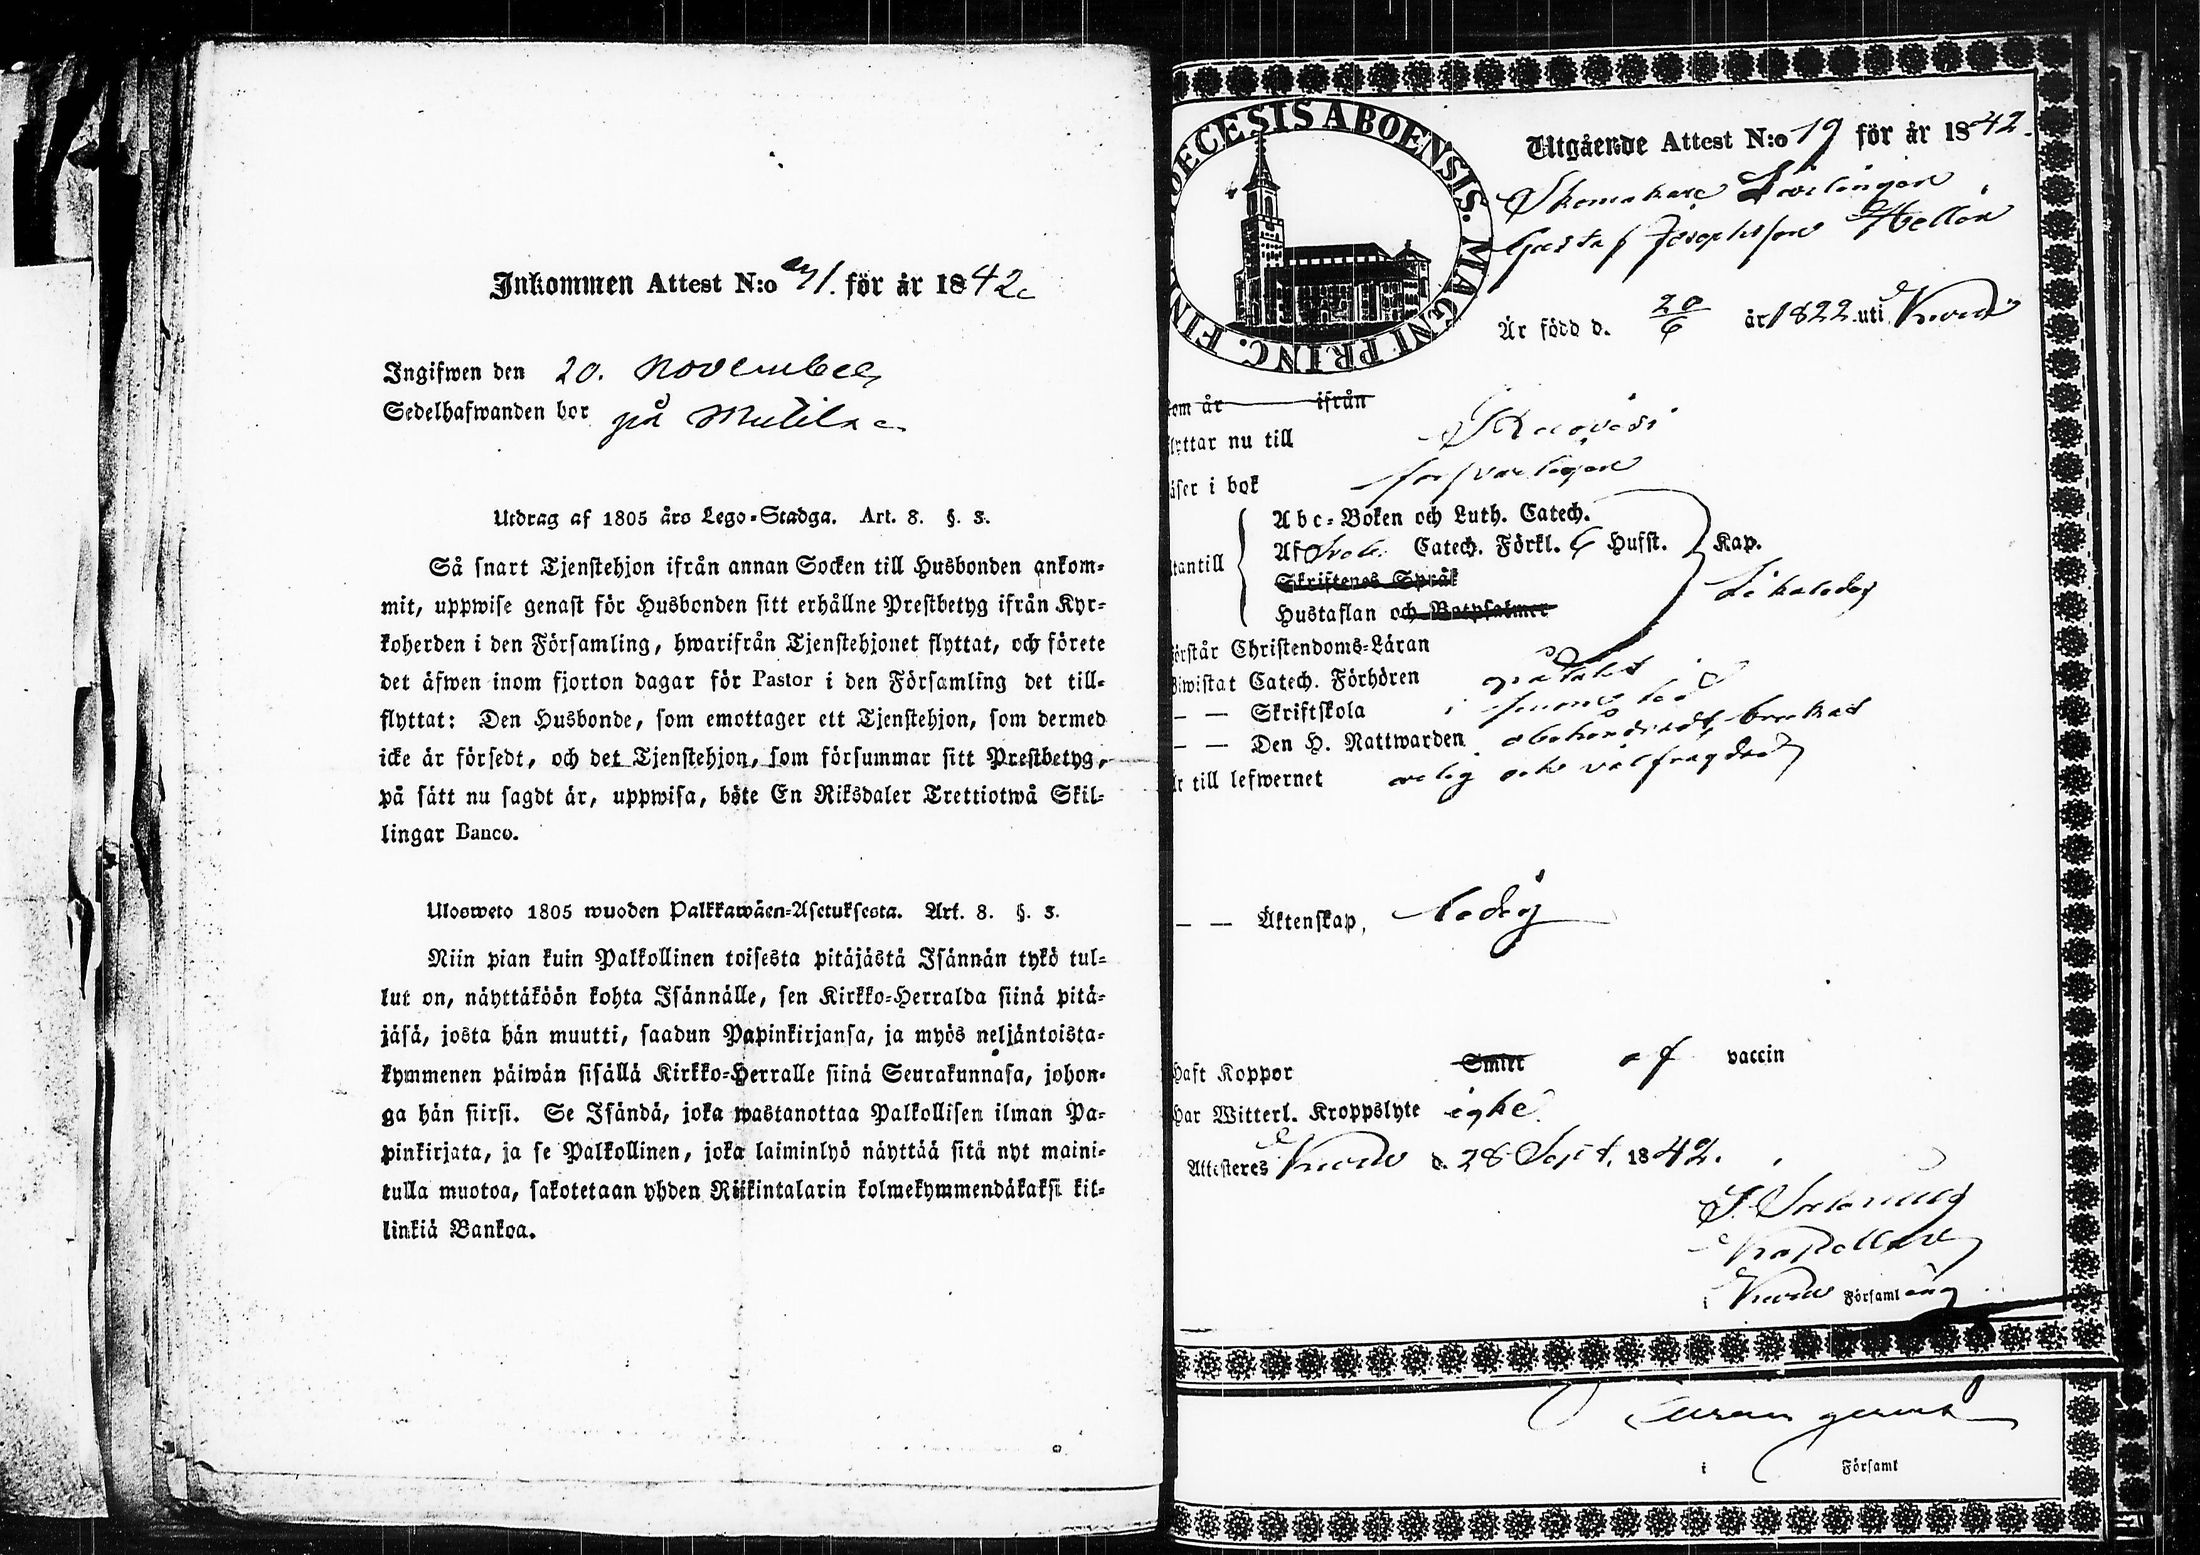 Inkommen Attest N:o 71. för år 1842
Ingifwen den 20. November
Sedelhafwanden bor på
Utdrag af 1805 års Lego-Stadga. Art. 8. §. 3.
Så snart Tjenstehjon ifrån annan Socken till Husbonden ankom-
mit, uppwise genast för Husbonden sitt erhållne Prestbetyg ifrån Kyr-
koherden i den Församling, hwarifrån Tjenstehjonet flyttat, och förete
det äfwen inom fjorton dagar för Pastor i den Församling det till-
flyttat: Den Husbonde, som emottager ett Tjenstehjon, som dermed
icke är försedt, och det Tjenstehjon, som försummar sitt Prestbetyg,
på sätt nu sagdt är, uppwisa, böte En Riksdaler Trettiotwå Skil-
lingar Banco.
Ulosweto 1805 wuoden Palkkawäen-Asetuksesta. Art. 8. §. 3.
Niin pian kuin Palkollinen toisesta pitäjästä Isännän tykö tul-
lut on, näyttäköön kohta Isännälle, sen Kirkko-Herralda siinä pitä-
jäsä, josta hän muutti, saadun Papinkirjansa, ja myös neljäntoista-
kymmenen päiwän sisällä Kirkko-Herralle siinä Seurakunnasa, johon-
ga hän siirsi. Se Isändä, joka wastanottaa Palkollisen ilman Pa-
pinkirjata, ja se Palkollinen, joka laiminlyö näyttää sitä nyt maini-
tulla muotoa, sakotetaan yhden Riikintalarin kolmekymmendäkaksi kil-
linkiä Bankoa.
ECESIS ABOENSIS. MAGNI PRINC. FIN
Utgående Attest N:o 19 för år 1842.
Skomakare Lärlingen
Gustaf Josephsson Hellén
Är född d. 20/6 år 1822 uti
om år ifrån
yttar nu till
äser i bok försvarligen
Abc-Boken och Luth. Catech.
Af Sveb. Catech. Förkl. 6 Hufst. Kap.
tantill
Skriftenes Språk
Likaledes
Hustaflan och Botpsalmer
örstår Christendoms-Läran
iwistat Catech. Förhören
— — Skriftskola
— — Den H. Nattwarden obehindradt, brukat
r till lefwernet ärlig och välfrägdad
— — Äktenskap, ledig
haft Koppor Smitt af vaccin
har Witterl. Kroppslyte icke
Attesteres d. 28 Sept. 1842.
Kapellan
i Församling
i Församl